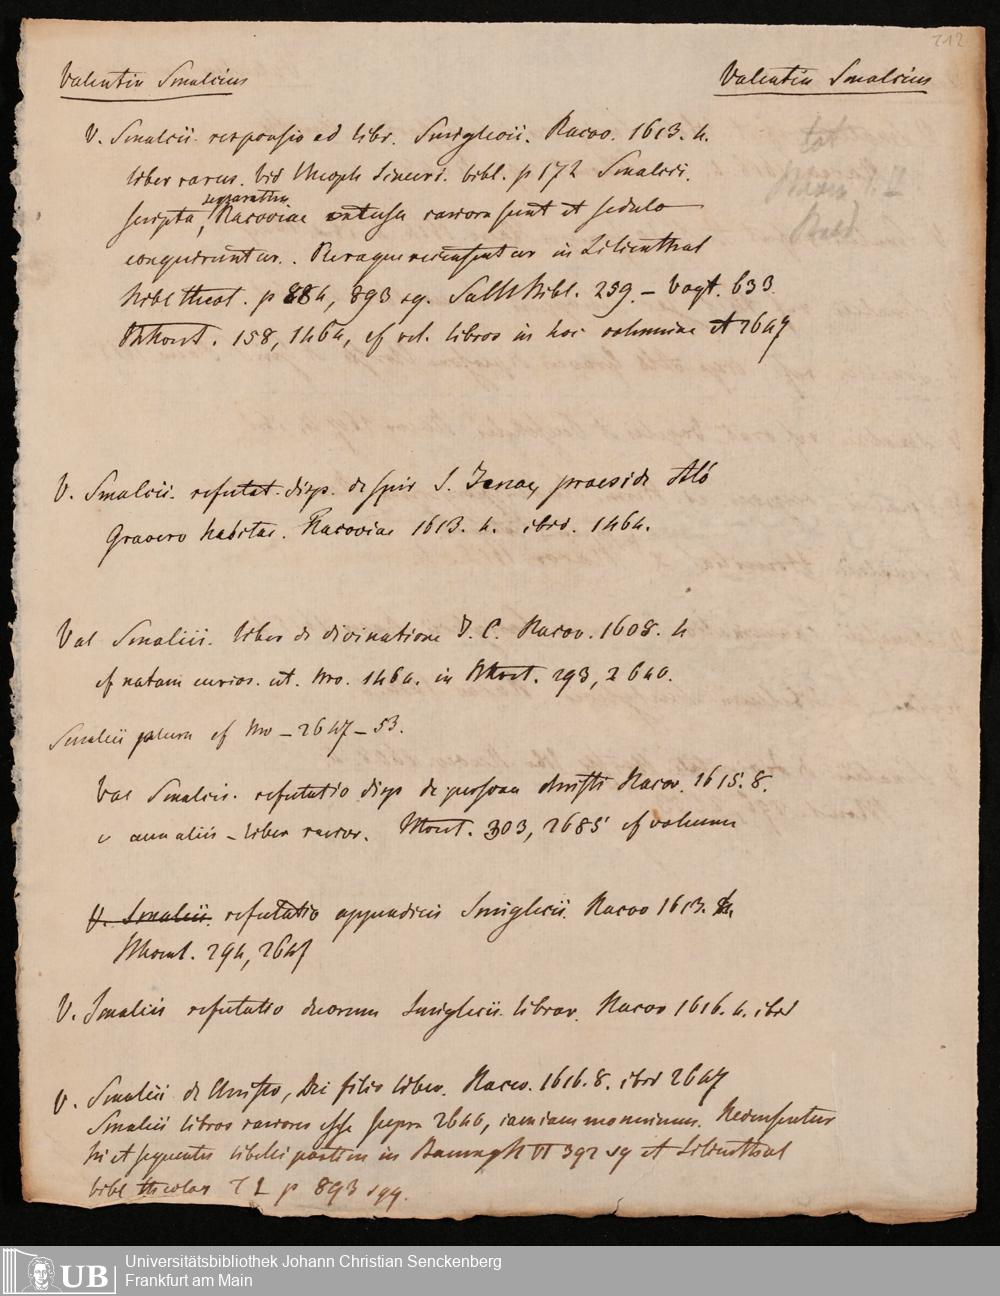 212
Valentin Smalcius Valentin Smalcius
V. Smalcii. responsio ad libr. Smiglecii. Racov. 1613. 4.
liber rarus. bibl. p 172 Smalcii.
separatim
scripta, Racoviae rariora sunt et sedulo
conquiruntur. in Lilienthal
bibl theol. p 884, 893 sq. Bibl. 259. – Vogt. 633
158, 1464, cf rel. libros in hoc volumine et 2647
V. Smalcii. refutat. disp. de spir S. Jenae, praeside Alb
Gravero habitae. Racoviae 1613. 4. ibid. 1464.
Val Smalcii. liber de divinitate J. C. Racov. 1608. 4
cf notam ad. no. 1464. in 293, 2640.
Smalcii cf no – 2647 – 53.
Val Smalcii. refutatio disp de persona Christi Racov. 1615. 8.
liber rarior. 303, 2685 cf volumen
V. Smalcii. refutatio appendicis Smiglecii. Racov 1613. 4.
294, 2647
V. Smalcii refutatio duorum Smiglecii. libror. Racov 1616. 4. ibid
V. Smalcii de Christo, Dei filio liber. Racov. 1616. 8. ibid 2647
Smalcii libros rariores esse supra 2646, iam iam monuimus. Recensentur
hi et sequentes libelli partim in Baumg VI 392 sq et Lilienthal
bibl theolog T 2 p 893 sqq.
UB
Universitätsbibliothek Johann Christian Senckenberg
Frankfurt am Main